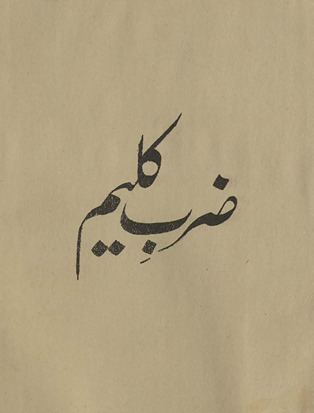 ضربِ کلیم